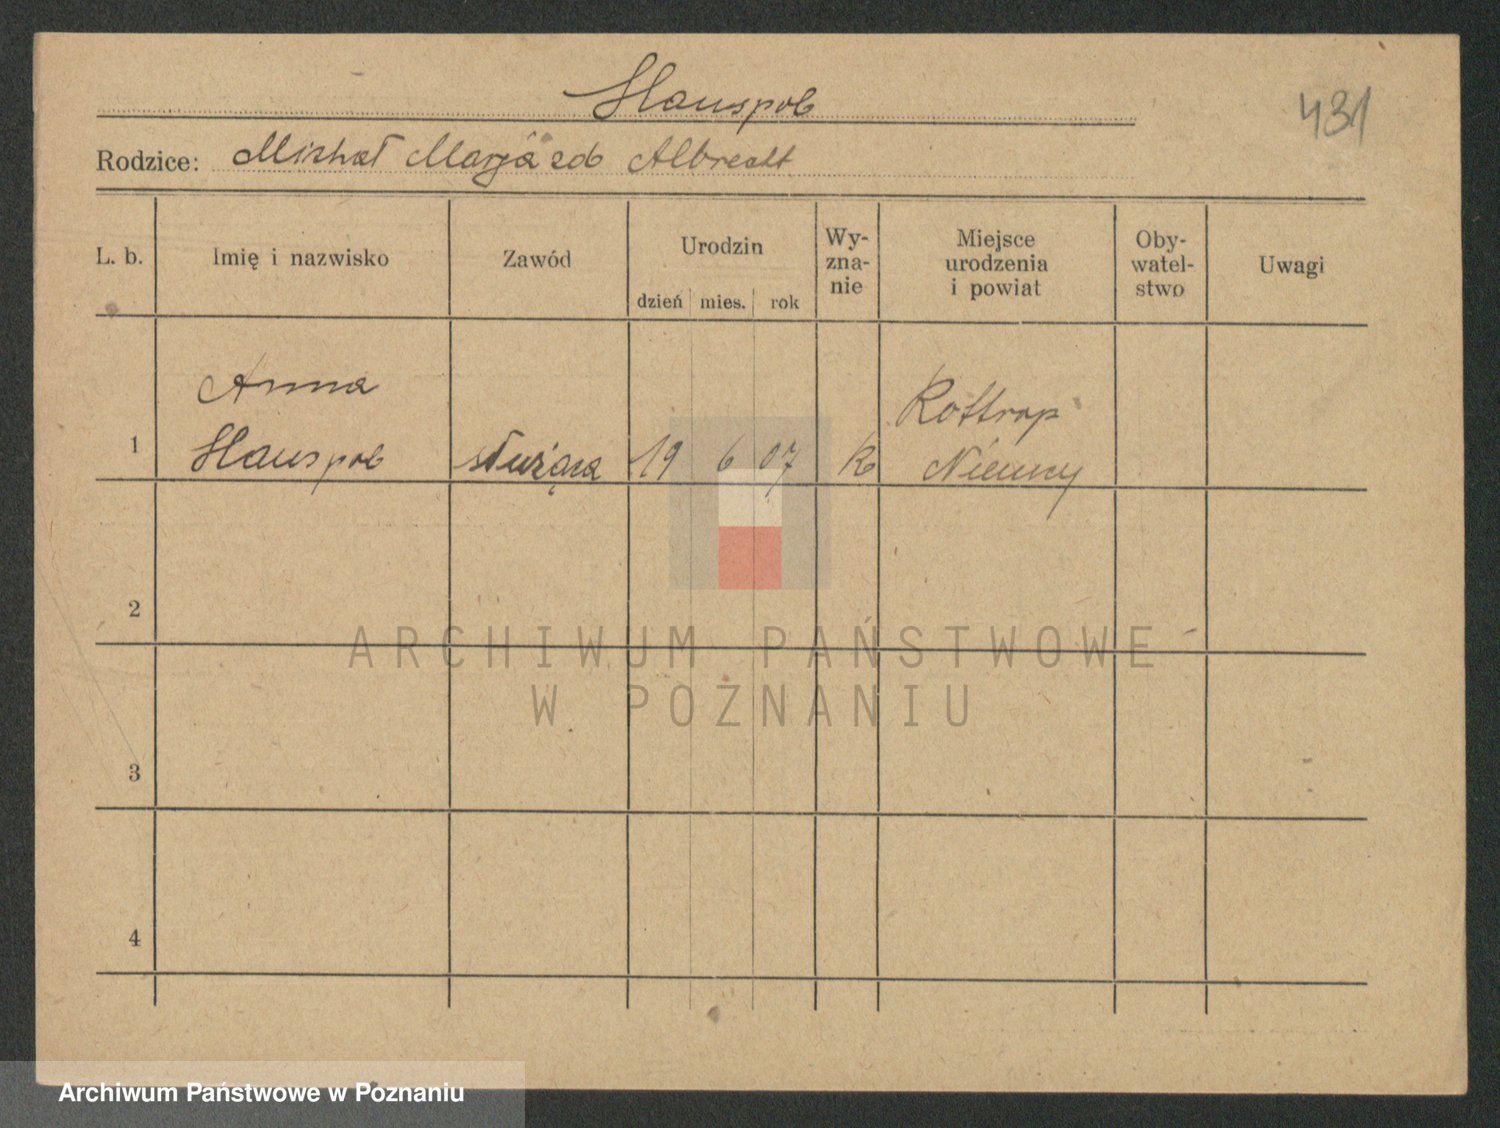 Hauspob
431
Rodzice: Michał Marja zd Albrecht
L. b.
Imię i nazwisko
Zawód
Urodzin
dzień mies. rok
Wy-
zna-
nie
Miejsce
urodzenia
i powiat
Oby-
watel-
stwo
Uwagi
1
Anna
Hauspob
służąca
19 6 07
k
Rottrop
Niemcy
2
3
4
ARCHIWUM PAŃSTWOWE
W POZNANIU
Archiwum Państwowe w Poznaniu